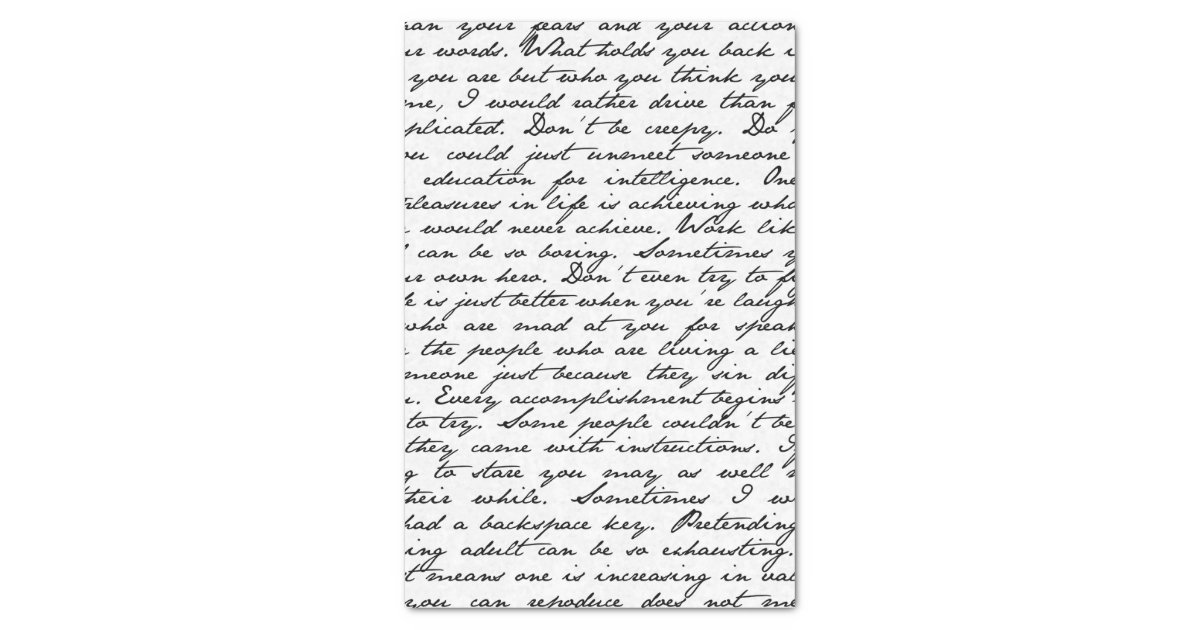 han your fears and your action
ur words. What holds you back i
you are but who you think you
me, I would rather drive than f
plicated. Don't be creepy. Do y
ou could just unmeet someone
education for intelligence. One
pleasures in life is achieving wha
u would never achieve. Work lik
l can be so boring. Sometimes y
ur own hero. Don't even try to fi
fe is just better when you're laugh
who are mad at you for speak
the people who are living a lie
meone just because they sin dif
u. Every accomplishment begins
to try. Some people couldn't be
they came with instructions. If
g to stare you may as well
their while. Sometimes I w
had a backspace key. Pretending
ing adult can be so exhausting.
t means one is increasing in val
you can repoduce does not me